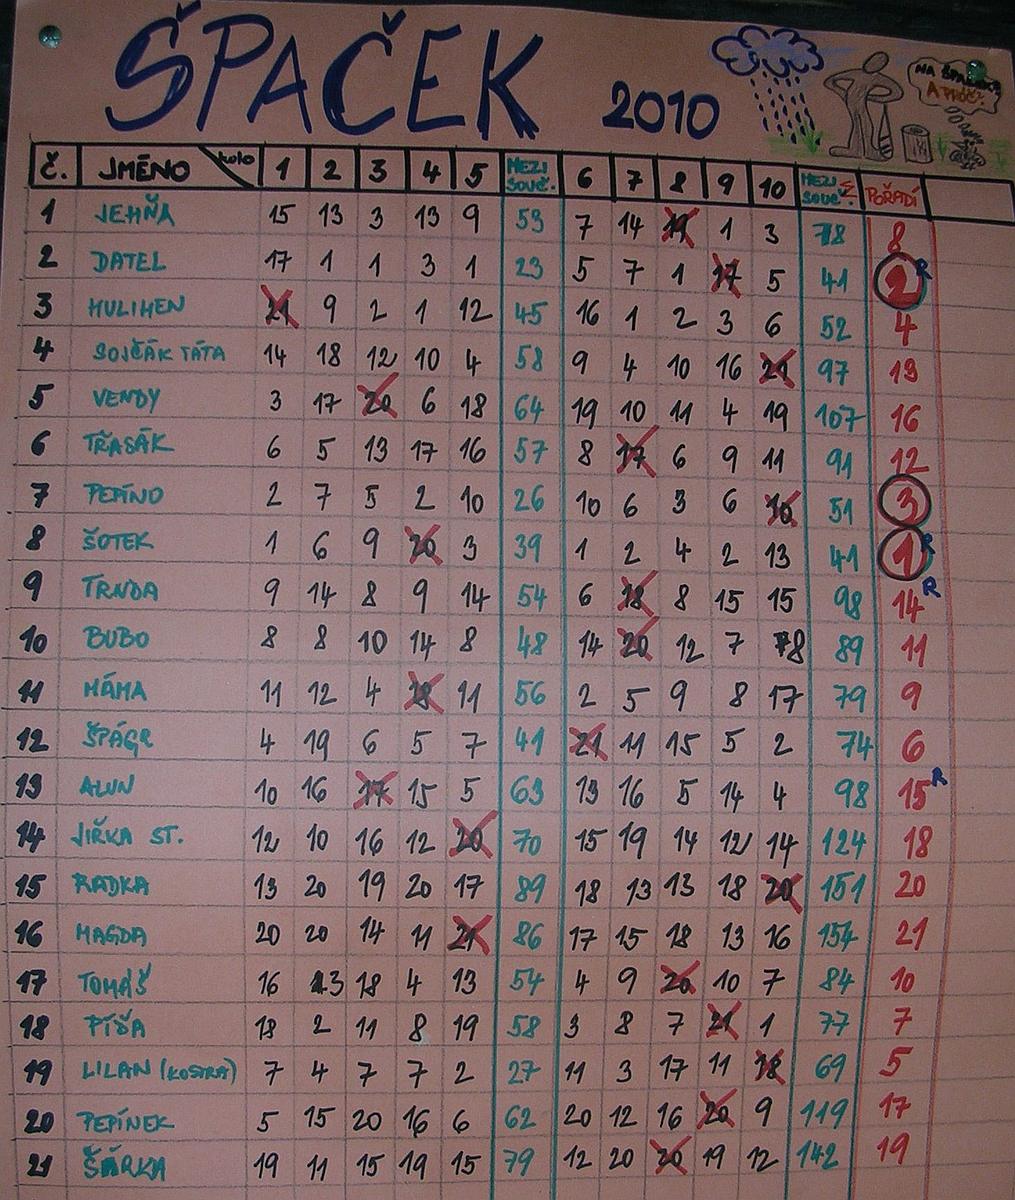 ŠPAČEK 2010
NA ŠPAČKA?
A PROČ?
Č. JMÉNO kolo 1 2 3 4 5 MEZI SOUČ. 6 7 8 9 10 MEZI SOUČ. Σ POŘADÍ
1 JEHŇA 15 13 3 13 9 53 7 14 19 1 3 78 8
2 DATEL 17 1 1 3 1 23 5 7 1 17 5 41 2 R
3 HULIHEN 21 9 2 1 12 45 16 1 2 3 6 52 4
4 SOJČÁK TÁTA 14 18 12 10 4 58 9 4 10 16 21 97 13
5 VENDY 3 17 20 6 18 64 19 10 11 4 19 107 16
6 TŘASÁK 6 5 13 17 16 57 8 17 6 9 11 91 12
7 PEPÍNO 2 7 5 2 10 26 10 6 3 6 16 51 3
8 ŠOTEK 1 6 9 20 3 39 1 2 4 2 13 41 1 R
9 TRNDA 9 14 8 9 14 54 6 18 8 15 15 98 14 R
10 BUBO 8 8 10 14 8 48 14 20 12 7 8 89 11
11 MÁMA 11 12 4 18 11 56 2 5 9 8 17 79 9
12 ŠPÁGR 4 19 6 5 7 41 21 11 15 5 2 74 6
13 ALUN 10 16 17 15 5 63 13 16 5 14 4 98 15 R
14 JIŘKA ST. 12 10 16 12 20 70 15 19 14 12 14 124 18
15 RADKA 13 20 19 20 17 89 18 13 13 18 20 151 20
16 MAGDA 20 20 14 11 21 86 17 15 18 13 16 154 21
17 TOMÁŠ 16 13 18 4 13 54 4 9 20 10 7 84 10
18 PÍŠA 18 2 11 8 19 58 3 8 7 21 1 77 7
19 LILAN (KOSTRA) 7 4 7 7 2 27 11 3 17 11 18 69 5
20 PEPÍNEK 5 15 20 16 6 62 20 12 16 20 9 119 17
21 ŠÁRKA 19 11 15 19 15 79 12 20 20 19 12 142 19